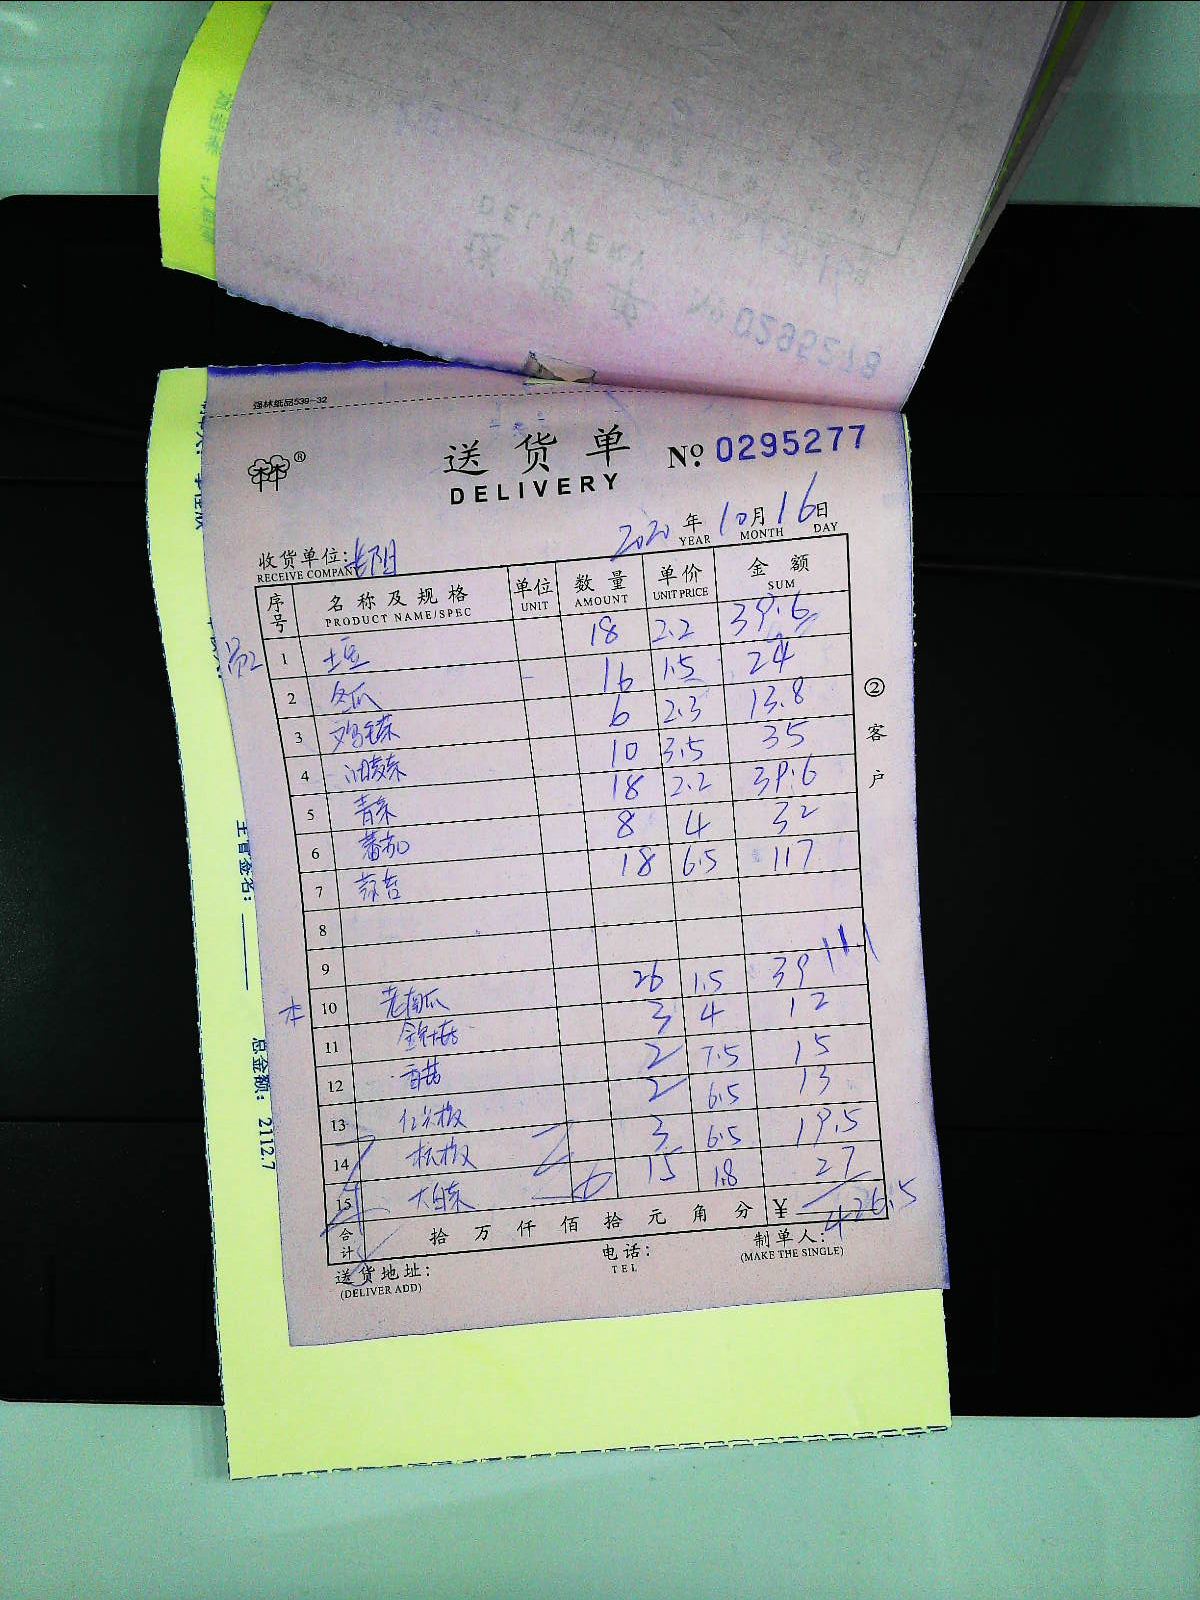 No 0295278
DELIVERY
送货单
强林纸品539-32
®
送货单 No. 0295277
DELIVERY
2020年10月16日
YEAR MONTH DAY
收货单位:长阳
RECEIVE COMPANY
序号 名称及规格 单位 数量 单价 金额
PRODUCT NAME/SPEC UNIT AMOUNT UNIT PRICE SUM
1 土豆 18 2.2 39.6
2 冬瓜 16 1.5 24
3 鸡毛菜 6 2.3 13.8
4 油麦菜 10 3.5 35
5 青菜 18 2.2 39.6
6 蕃茄 8 4 32
7 蒜苔 18 6.5 117
8
9
10 老南瓜 26 1.5 39
11 金针菇 3 4 12
12 香菇 2 7.5 15
13 红尖椒 2 6.5 13
14 杭椒 3 6.5 19.5
15 大白菜 15 1.8 27
合计 拾万仟佰拾元角分 ¥ 426.5
送货地址: 电话: 制单人:
(DELIVER ADD) TEL (MAKE THE SINGLE)
②客户
主管签名:
总金额: 2112.7